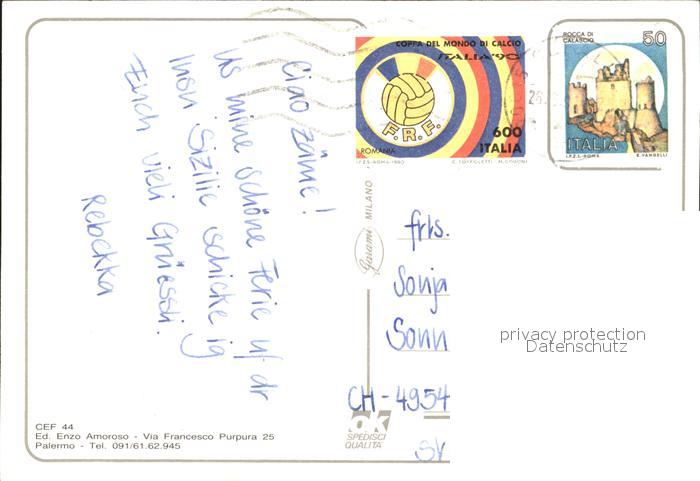 Ciao zäme!
us mine schöne Ferie uf dr
Insu Sizilie schicke ig
Euch vieli Grüessli.
Rebekka
COPPA DEL MONDO DI CALCIO
ITALIA'90
F.R.F.
ROMANIA
600
ITALIA
I.P.Z.S.-ROMA-1990
ROCCA DI
CALASCIO
50
ITALIA
I.P.Z.S.-ROMA
E. VANGELLI
Garami MILANO
frls.
Sonja
Sonn
CH-4954
privacy protection
Datenschutz
OK
SPEDISCI
QUALITÀ
CEF 44
Ed. Enzo Amoroso - Via Francesco Purpura 25
Palermo - Tel. 091/61.62.945